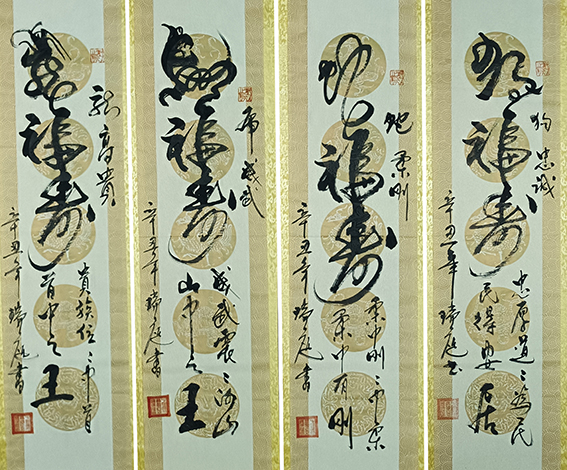 狗福寿
狗忠诚
忠厚道々为民
民得安居
辛丑年瑞庭书
蛇福寿
蛇柔刚
柔中刚々中柔
柔中有刚
辛丑年瑞庭書
虎福寿
虎威武
威武震々河山
山中之王
辛丑年瑞庭書
龙福寿
龍高貴
貴族位々中首
首中之王
辛丑年瑞庭書